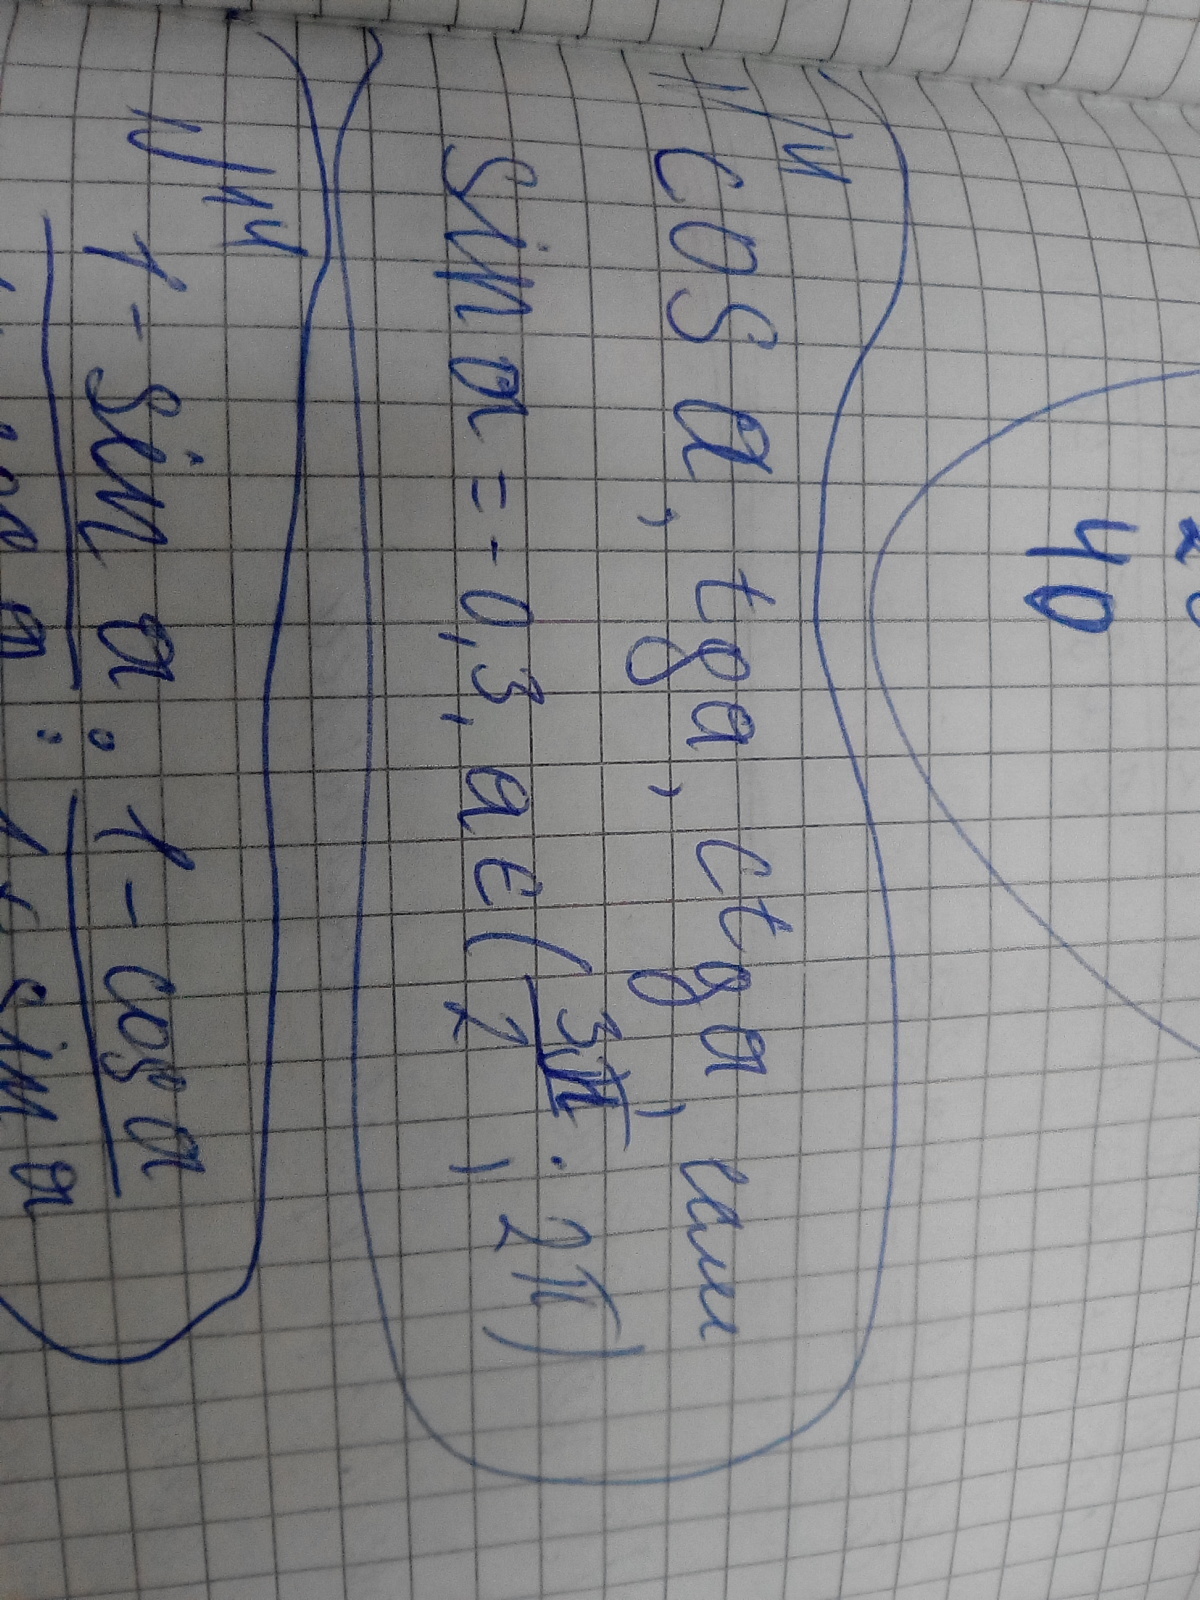 40
N/4
cos a, tga, ctga, если
sin a = - 0,3, a ∈ (3π/2 ; 2π)
N44
1 - sin a : 1 - cos a
sin a